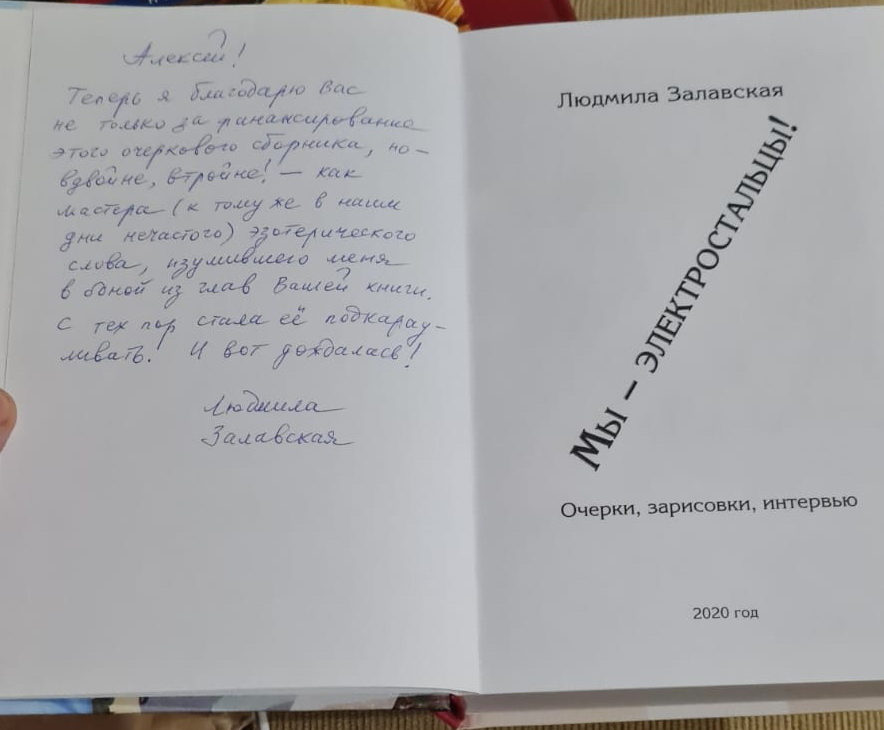 Алексей!
Теперь я благодарю Вас
не только за финансирование
этого очеркового сборника, но –
вдвойне, втройне! – как
мастера (к тому же в наши
дни нечастого) эзотерического
слова, изумившего меня
в одной из глав Вашей книги.
С тех пор стала её подкарау-
ливать! И вот дождалась!
Людмила
Залавская
Людмила Залавская
Мы – ЭЛЕКТРОСТАЛЬЦЫ!
Очерки, зарисовки, интервью
2020 год